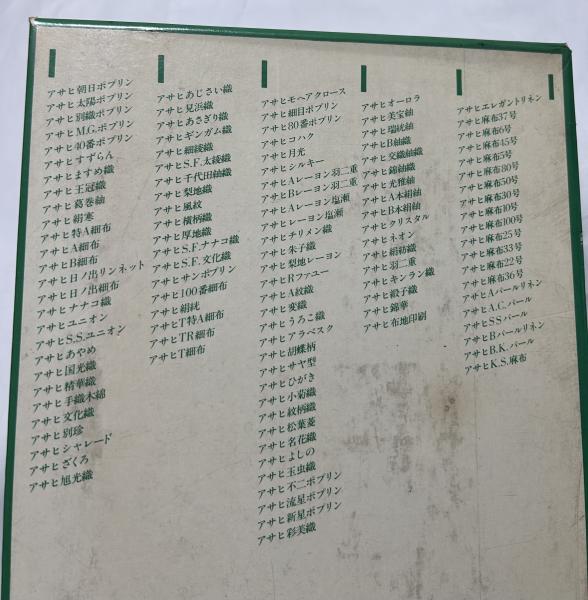 アサヒ朝日ポプリン
アサヒ太陽ポプリン
アサヒ別織ポプリン
アサヒM.G.ポプリン
アサヒ40番ポプリン
アサヒすずらん
アサヒますめ織
アサヒ王冠織
アサヒ葛巻紬
アサヒ絹寒
アサヒ特A細布
アサヒA細布
アサヒB細布
アサヒ日ノ出リンネット
アサヒ日ノ出細布
アサヒナナコ織
アサヒユニオン
アサヒS.S.ユニオン
アサヒあやめ
アサヒ国光織
アサヒ精華織
アサヒ手織木綿
アサヒ文化織
アサヒ別珍
アサヒシャレード
アサヒざくろ
アサヒ旭光織
アサヒあじさい織
アサヒ見浜織
アサヒあさぎり織
アサヒギンガム織
アサヒ細綾織
アサヒS.F.太綾織
アサヒ千代田紬織
アサヒ梨地織
アサヒ風紋
アサヒ横柄織
アサヒ厚地織
アサヒS.F.ナナコ織
アサヒS.F.文化織
アサヒサンポプリン
アサヒ100番細布
アサヒ絹絖
アサヒT特A細布
アサヒTR細布
アサヒT細布
アサヒモヘアクロース
アサヒ細目ポプリン
アサヒ80番ポプリン
アサヒコハク
アサヒ月光
アサヒシルキー
アサヒAレーヨン羽二重
アサヒBレーヨン羽二重
アサヒAレーヨン塩瀬
アサヒレーヨン塩瀬
アサヒチリメン織
アサヒ朱子織
アサヒ梨地レーヨン
アサヒRファユー
アサヒA紋織
アサヒ変織
アサヒうろこ織
アサヒアラベスク
アサヒ胡蝶柄
アサヒサヤ型
アサヒひがき
アサヒ小菊織
アサヒ紋柄織
アサヒ松葉菱
アサヒ名花織
アサヒよしの
アサヒ玉虫織
アサヒ不二ポプリン
アサヒ流星ポプリン
アサヒ新星ポプリン
アサヒ彩美織
アサヒオーロラ
アサヒ美宝紬
アサヒ瑞統紬
アサヒB紬織
アサヒ交織紬織
アサヒ錦紬織
アサヒ光雅紬
アサヒA本絹紬
アサヒB本絹紬
アサヒクリスタル
アサヒネオン
アサヒ絹紡織
アサヒ羽二重
アサヒキンラン織
アサヒ緞子織
アサヒ錦華
アサヒ布地印刷
アサヒエレガントリネン
アサヒ麻布37号
アサヒ麻布6号
アサヒ麻布45号
アサヒ麻布5号
アサヒ麻布80号
アサヒ麻布50号
アサヒ麻布30号
アサヒ麻布10号
アサヒ麻布100号
アサヒ麻布25号
アサヒ麻布33号
アサヒ麻布22号
アサヒ麻布36号
アサヒAパールリネン
アサヒA.C.パール
アサヒSSパール
アサヒBパールリネン
アサヒB.K.パール
アサヒK.S.麻布